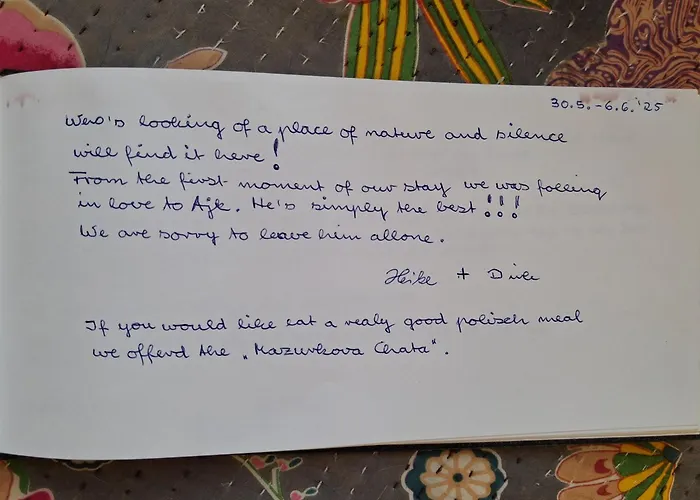 30.5.-6.6.'25
Who's looking of a place of nature and silence
will find it here!
From the first moment of our stay we was falling
in love to Ajk. He's simply the best!!!
We are sorry to leave him allone.
Heike + Dirk
If you would like eat a realy good polisch meal
we offerd the „Mazurkova Chata“.